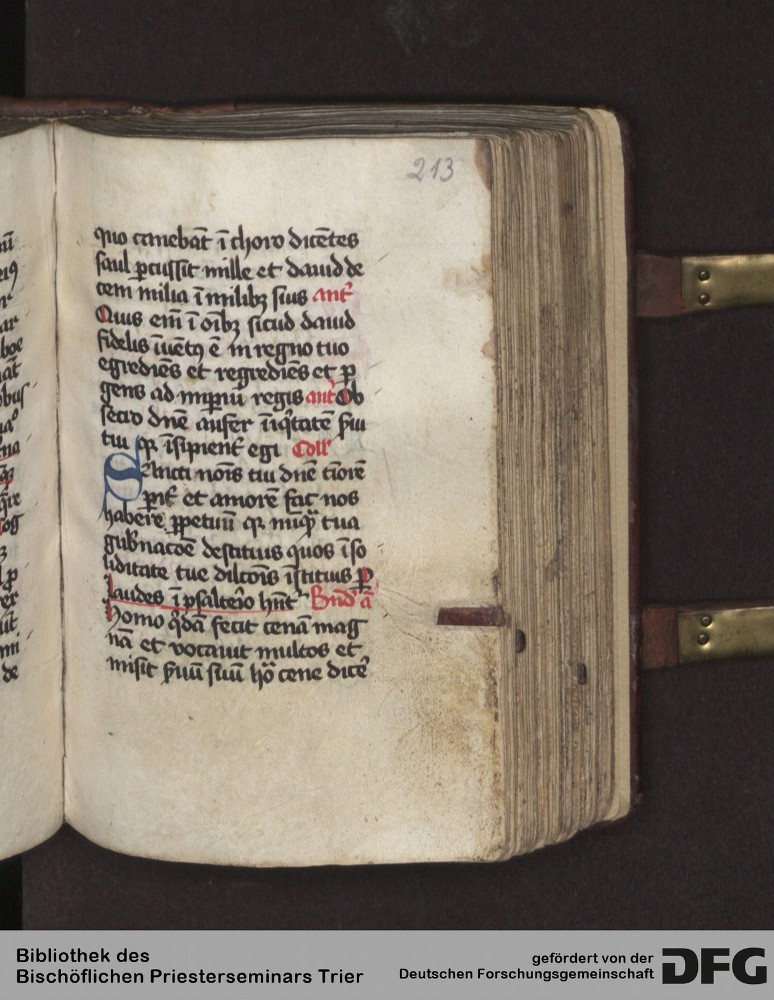 213
quo canebāt ī choro dicētes
saul ꝑcussit mille et dauid de
cem milia ī milibꝫ suis ant̄
Quis em̄ ī oībꝫ sicud dauid
fidelis īuētꝯ ē in regno tuo
egrediēs et regrediēs et ꝑ
gens ad imꝑiū regis ant̄ Ob
secro dnē aufer īiq̄tatē ẜui
tui qꝛ īsipient̄ egi Coll̄
Sancti nōīs tui dnē tīorē
pit̄ et amorē fac nos
habere ꝑpetuū qꝛ nūq̄ tua
gub̄nacōe destituis quos ī so
liditate tue dilcōis īstituis P
laudes ī psalterō hn̄t Bn̄d' ā
homo q̄dā fecit cenā mag
nā et vocauit multos et
misit ẜuū suū ho᷑ cene dice᷑
de
Bibliothek des
Bischöflichen Priesterseminars Trier
gefördert von der
Deutschen Forschungsgemeinschaft
DFG